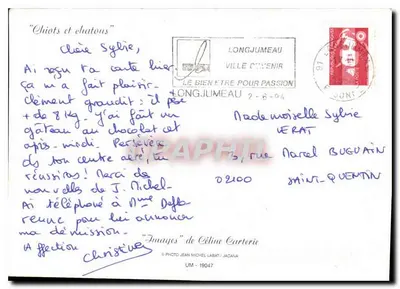 "Chiots et chatons"
Chère Sylvie,
Ai reçu ta carte hier.
Ça m'a fait plaisir.
Clément grandit : il pèse
+ de 8 kg. J'ai fait un
gâteau au chocolat cet
après-midi. Persévère
ds ton centre aéré tu
réussiras ! Merci des
nouvelles de J. Michel.
Ai téléphoné à Mme
reçue pour lui annoncer
ma démission.
Affection
Christine
LONGJUMEAU
VILLE D'AVENIR
LE BIEN ETRE POUR PASSION
LONGJUMEAU 2-8-94
91
Mademoiselle Sylvie
VERAT
rue Marcel
02100 SAINT-QUENTIN
"Images" de Céline Carterie
© PHOTO JEAN MICHEL LABAT - JACANA
UM - 19047